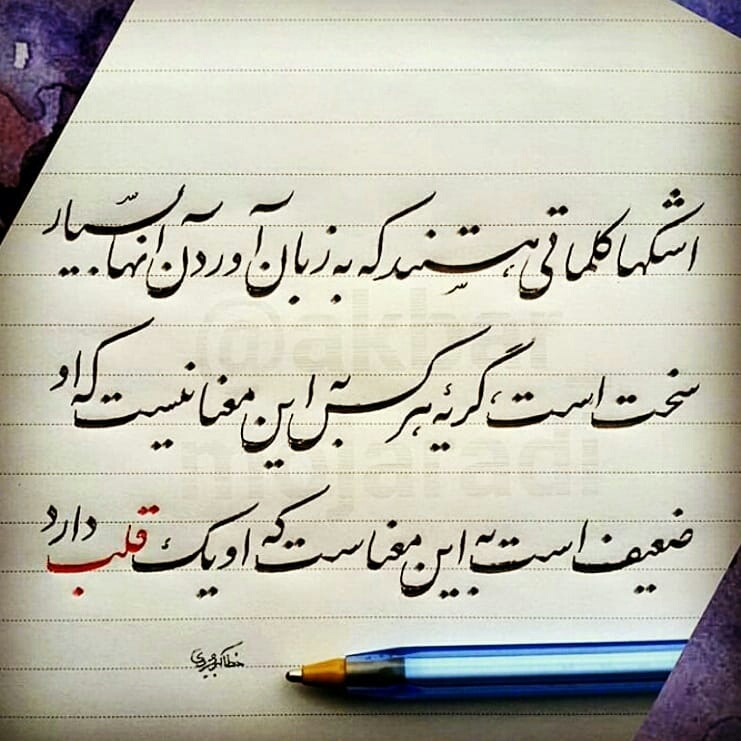 اشکها کلماتی هستند که به زبان آوردن آنها بسیار
سخت است، گریهٔ هر کس به این معنا نیست که او
ضعیف است به این معناست که او یک قلب دارد
@akbar
mojaradi